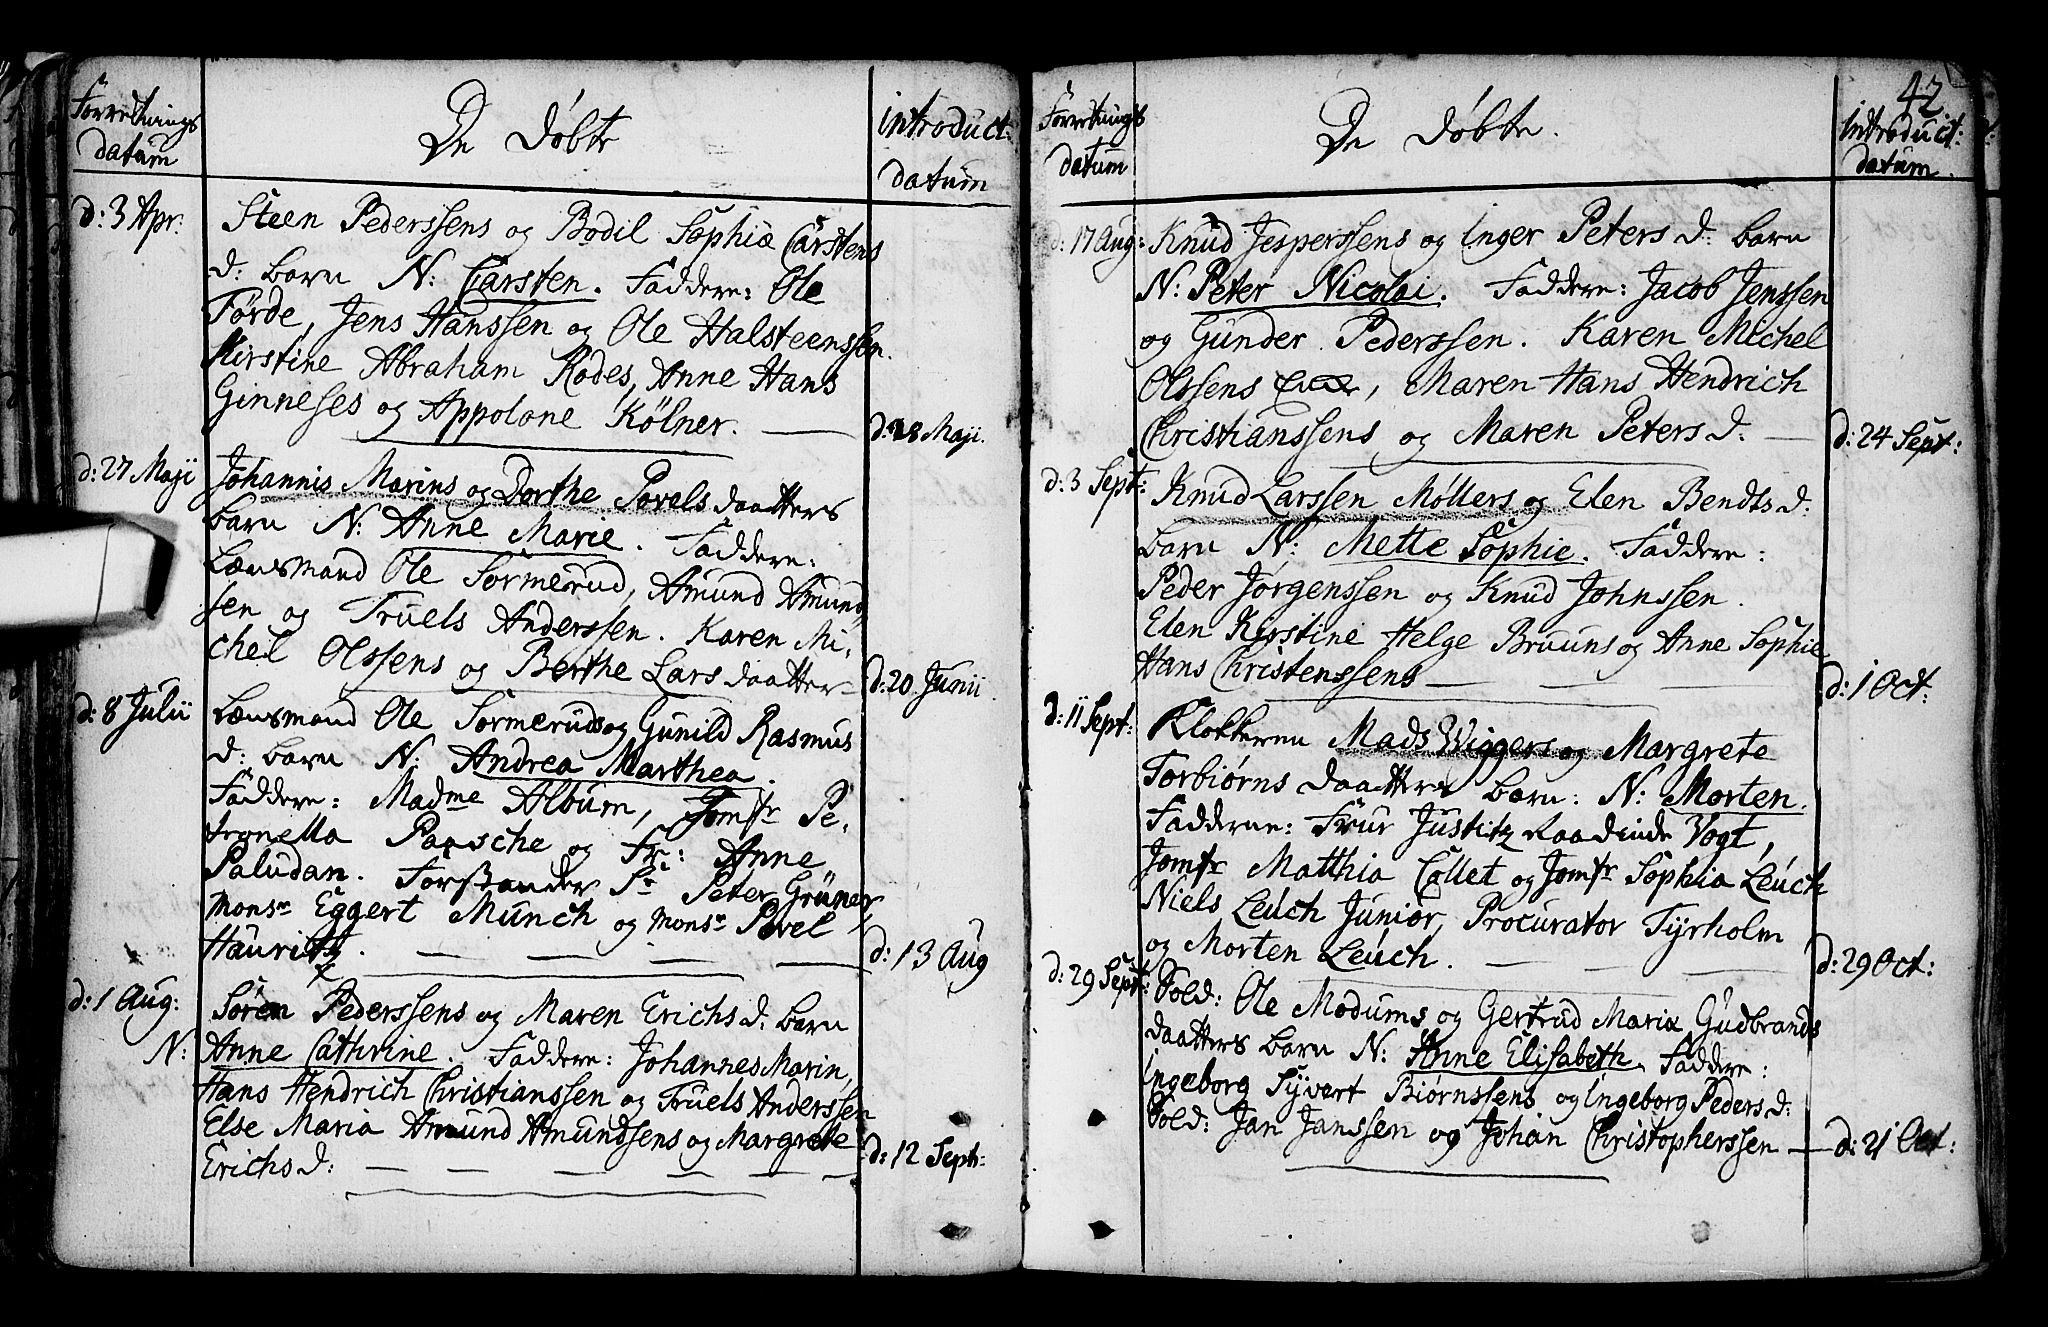 Forretnings
datum
De døbte
introduct:
datum
d: 3 Apr.
Steen Pederssens og Bodil Sophia Carstens
d: barn N: Carsten. Faddere: Ole
Förde, Jens Hanssen og Ole Halsteenssen.
Kirstine Abraham Rodes, Anne Hans
Ginneses og Appolone Kölner. —
d: 18 Maji.
d: 27 Maji
Johannis Marins og Dorthe Povels daatters
barn N: Anne Marie. Faddere:
Lænsmand Ole Sormerud, Amund Amund
sen og Truels Anderssen. Karen Mi-
chel Olssens og Berthe Lars daatter—
d: 20 Junii.
d: 8 Julii
Lænsmand Ole Sormeruds og Gunild Rasmus
d: barn N: Andrea Marthea.
Faddere: Madme Album, Jomfr Pe-
tronella Paasche og Fr: Anne
Paludan. Forstander Sr Peter Grüner,
Monsr Eggert Munch og Monsr Povel
Hauritz. — — — —
d: 13 Aug
d: 1 Aug:
Søren Pederssens og Maren Erichs d: barn
N: Anne Cathrine. Faddere: Johannes Marin,
Hans Hendrich Christianssen og Truels Anderssen
Else Maria Amund Amundsens og Margrete
Erichs d: — — — — —
d: 12 Sept:
42
Forretnings
datum
De døbte.
introduct:
datum.
d: 17 Aug:
Knud Jesperssens og Inger Peters d: barn
N: Peter Nicolai. Faddere: Jacob Jenssen
og Gunder Pederssen. Karen Michel
Olssens, Maren Hans Hendrich
Christianssens og Maren Peters d: —
d: 24 Sept:
d: 3 Sept:
Knud Larssen Møllers og Elen Bendts d:
barn N: Mette Sophie. Faddere:
Peder Jørgenssen og Knud Johnssen.
Elen Kirstine Helge Bruuns og Anne Sophie
Hans Christenssens — — —
d: 1 Oct:
d: 11 Sept:
Klokkeren Mads Wiggers og Margrete
Torbiørns daatters barn: N: Morten.
Fadderne: Frue Justitz Raadinde Vogt,
Jomfr Matthia Collet og Jomfr Sophia Leuch
Niels Leuch Junior, Procurator Tyrholm
og Morten Leuch. — — —
d: 29 Oct:
d: 29 Sept:
Sold: Ole Modums og Gertrud Maria Gudbrands
daatters barn N: Anne Elisabeth. Faddere:
Ingeborg Syvert Biørnssens og Ingeborg Peders d:
Sold: Jan Janssen og Johan Christopherssen —
d: 21 Oct: